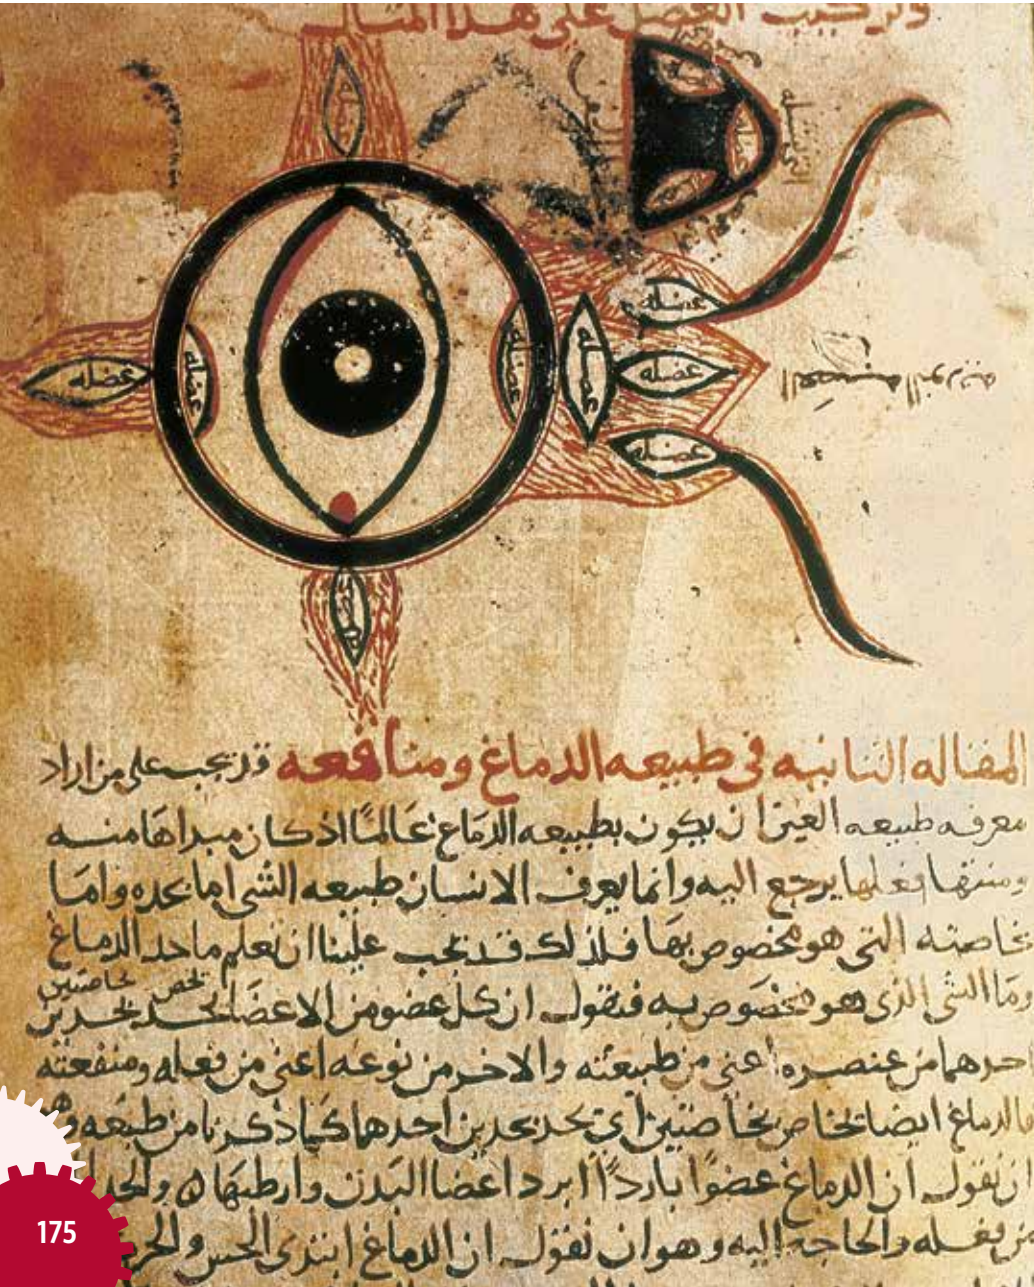 وتركيب العضل على هذا المثال
عضله
عضله
عضله
عضله
عضله
عضله
عضله
عضله
عضله
عضله
المقاله الثانيه في طبيعه الدماغ ومنافعه قد يجب على من اراد
معرفه طبيعه العين ان يكون بطبيعه الدماغ عالمًا اذ كان مبداها منه
ومنتها فعلها يرجع اليه وانما يعرف الانسان طبيعه الشي اما بحده واما
بخاصته التي هو مخصوص بها فلذلك قد يجب علينا ان نعلم ما حد الدماغ
وما الشي الذي هو مخصوص به فنقول ان كل عضو من الاعضا يحد بحدين
يخص بخاصتين
احدهما من عنصره اعني من طبيعته والاخر من نوعه اعني من فعله ومنفعته
فالدماغ ايضا بخاصتين اي يحد بحدين احدهما كما ذكرنا من طبعه وهو
ان نقول ان الدماغ عضوًا باردًا ابرد اعضا البدن وارطبها
من فعله والحاجه اليه وهو ان نقول ان الدماغ ابتدى الحس
175